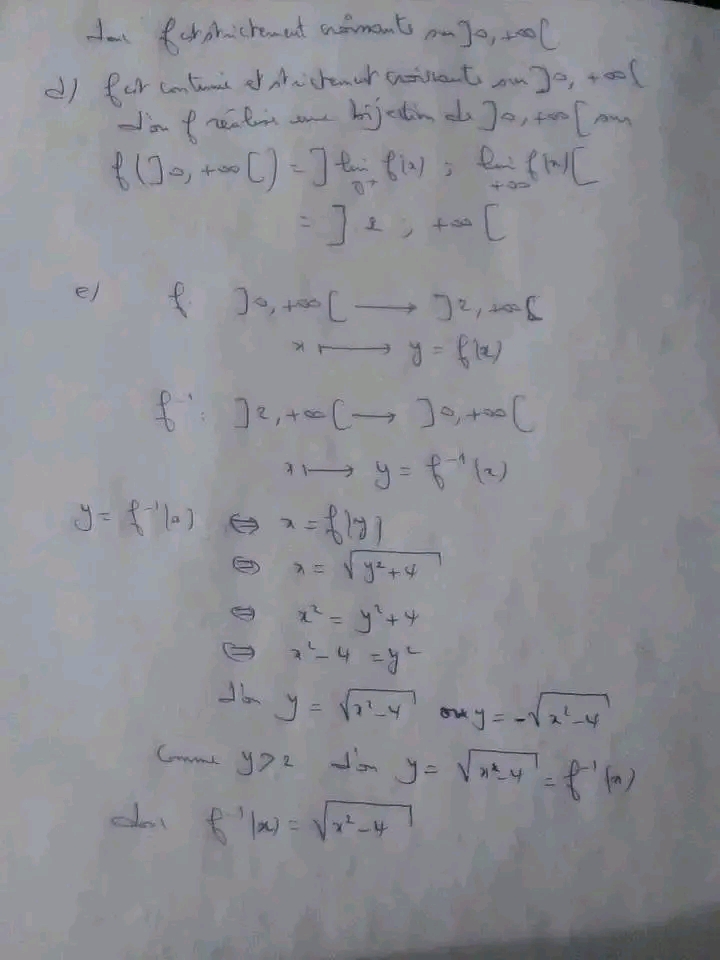 donc f est strictement croissante sur ]0, +∞[
d) f est continue et strictement croissante sur ]0, +∞[
d'où f réalise une bijection de ]0, +∞[ sur
f(]0, +∞[) = ] lim f(x) ; lim f(x) [
0+ +∞
= ] 2 ; +∞ [
e) f: ]0, +∞[ ⟶ ]2, +∞[
x ⟼ y = f(x)
f⁻¹: ]2, +∞[ ⟶ ]0, +∞[
x ⟼ y = f⁻¹(x)
y = f⁻¹(x) ⇔ x = f(y)
⇔ x = √(y²+4)
⇔ x² = y²+4
⇔ x²-4 = y²
d'où y = √(x²-4) ou y = -√(x²-4)
Comme y > 2 d'où y = √(x²-4) = f⁻¹(x)
donc f⁻¹(x) = √(x²-4)